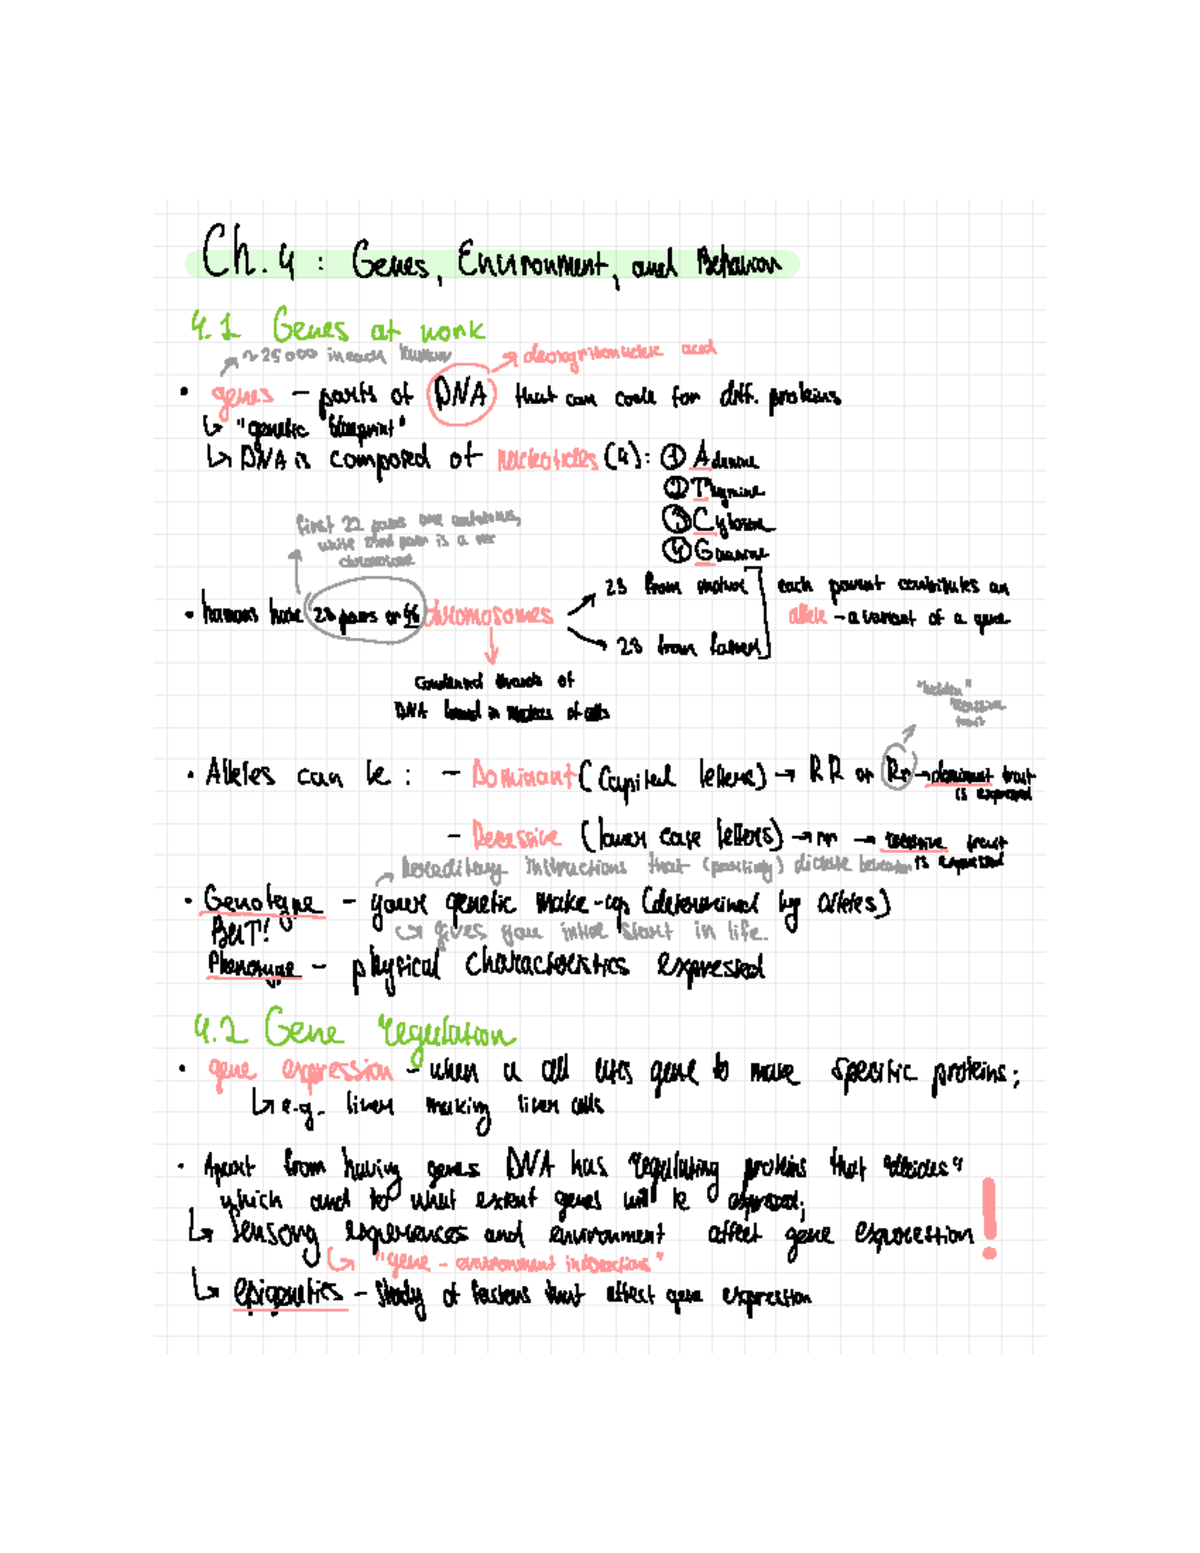 Ch. 4 : Genes, Environment, and Behavior
4.1 Genes at work
~25000 in each human
deoxyribonucleic acid
• genes – parts of DNA that can code for diff. proteins
↳ "genetic blueprint"
↳ DNA is composed of nucleotides (4): ① Adenine
② Thymine
③ Cytosine
④ Guanine
first 22 pairs are autosomes,
while 23rd pair is a sex
chromosome
• humans have 23 pairs or 46 chromosomes
23 from mother
23 from father
each parent contributes an
allele – a variant of a gene
Condensed threads of
DNA found in nucleus of cells
"hidden"
recessive
trait
• Alleles can be : – Dominant (Capital letters) → RR or Rr → dominant trait
is expressed
– Recessive (lower case letters) → rr → recessive trait
is expressed
hereditary instructions that (partially) dictate behavior
• Genotype – your genetic make-up (determined by alleles)
BUT!
↳ gives you initial start in life.
Phenotype – physical characteristics expressed
4.2 Gene regulation
• gene expression – when a cell uses gene to make specific proteins;
↳ e.g. liver making liver cells
• Apart from having genes DNA has regulating proteins that "decides"
which and to what extent genes will be expressed;
↳ Sensory experiences and environment affect gene expression !
↳ "gene – environment interactions"
↳ epigenetics – study of factors that affect gene expression